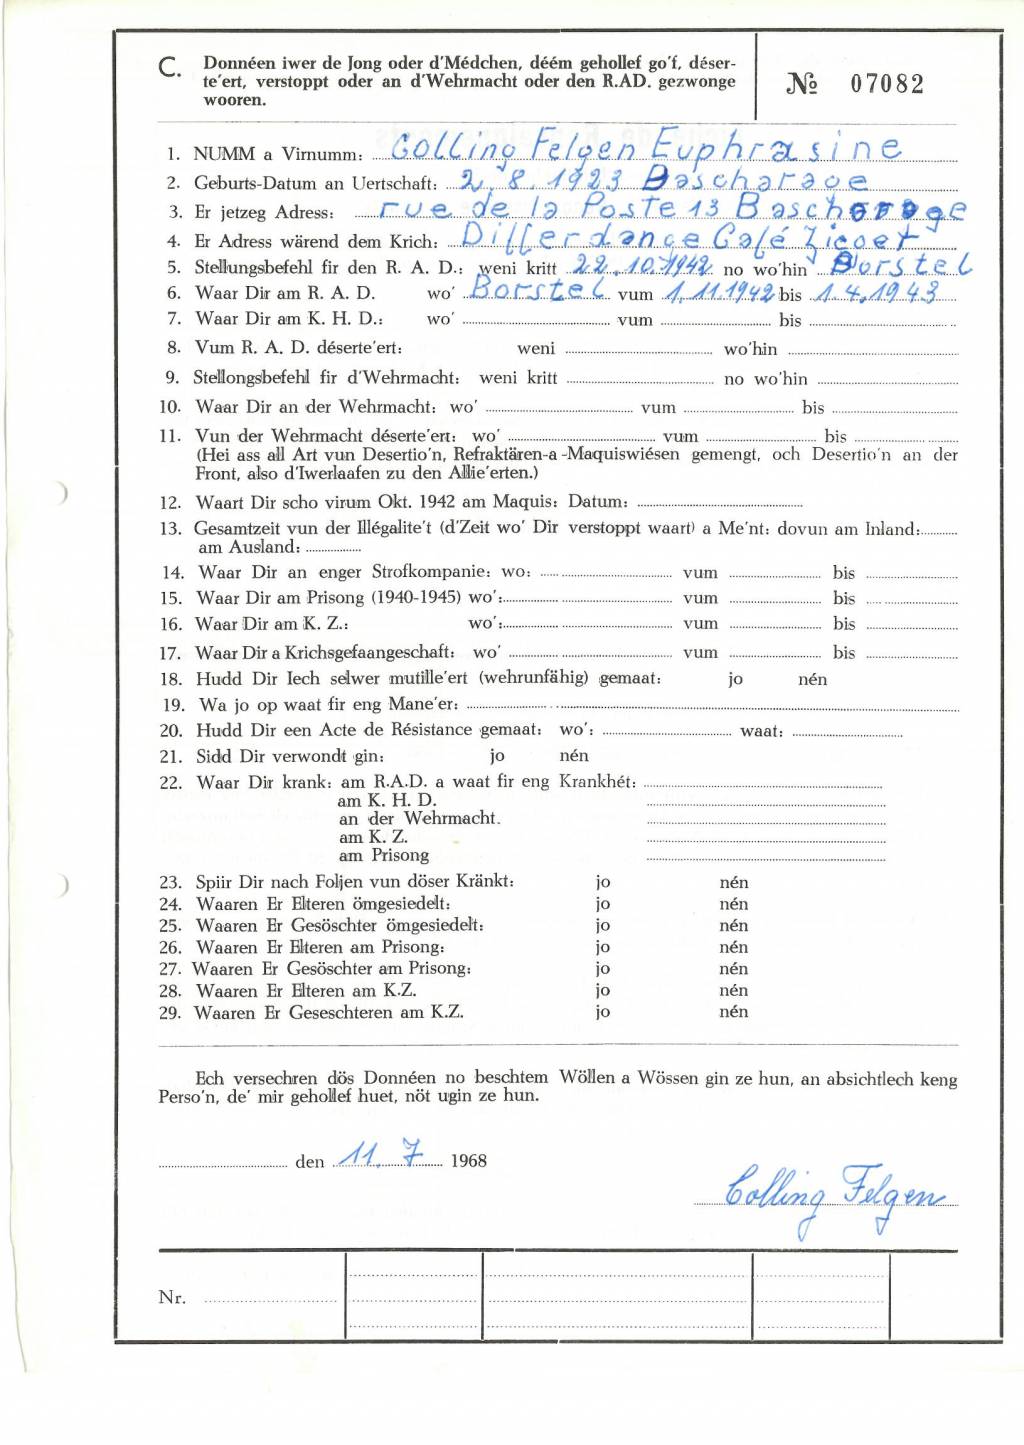 C. Donnéen iwer de Jong oder d'Médchen, déém gehollef go'f, déser-
te'ert, verstoppt oder an d'Wehrmacht oder den R.AD. gezwonge
wooren.
№ 07082
1. NUMM a Virnumm: Colling Felgen Euphrasine
2. Geburts-Datum an Uertschaft: 2. 8. 1923 Bascharage
3. Er jetzeg Adress: rue de la Poste 13 Bascharage
4. Er Adress wärend dem Krich: Differdange Café
5. Stellungsbefehl fir den R. A. D.: weni kritt 22. 10. 1942 no wo'hin Borstel
6. Waar Dir am R. A. D. wo' Borstel vum 1. 11. 1942 bis 1. 4. 1943
7. Waar Dir am K. H. D.: wo' vum bis
8. Vum R. A. D. déserte'ert: weni wo'hin
9. Stellongsbefehl fir d'Wehrmacht: weni kritt no wo'hin
10. Waar Dir an der Wehrmacht: wo' vum bis
11. Vun der Wehrmacht déserte'ert: wo' vum bis
(Hei ass all Art vun Desertio'n, Refraktären-a-Maquiswiésen gemengt, och Desertio'n an der
Front, also d'Iwerlaafen zu den Allie'erten.)
12. Waart Dir scho virum Okt. 1942 am Maquis: Datum:
13. Gesamtzeit vun der Illégalite't (d'Zeit wo' Dir verstoppt waart) a Me'nt: dovun am Inland:
am Ausland:
14. Waar Dir an enger Strofkompanie: wo: vum bis
15. Waar Dir am Prisong (1940-1945) wo': vum bis
16. Waar Dir am K. Z.: wo': vum bis
17. Waar Dir a Krichsgefaangeschaft: wo' vum bis
18. Hudd Dir Iech selwer mutille'ert (wehrunfähig) gemaat: jo nén
19. Wa jo op waat fir eng Mane'er:
20. Hudd Dir een Acte de Résistance gemaat: wo': waat:
21. Sidd Dir verwondt gin: jo nén
22. Waar Dir krank: am R.A.D. a waat fir eng Krankhét:
am K. H. D.
an der Wehrmacht.
am K. Z.
am Prisong
23. Spiir Dir nach Foljen vun döser Kränkt: jo nén
24. Waaren Er Elteren ömgesiedelt: jo nén
25. Waaren Er Gesöschter ömgesiedelt: jo nén
26. Waaren Er Elteren am Prisong: jo nén
27. Waaren Er Gesöschter am Prisong: jo nén
28. Waaren Er Elteren am K.Z. jo nén
29. Waaren Er Geseschteren am K.Z. jo nén
Ech versechren dös Donnéen no beschtem Wöllen a Wössen gin ze hun, an absichtlech keng
Perso'n, de' mir gehollef huet, nöt ugin ze hun.
den 11. 7 1968
Colling Felgen
Nr.